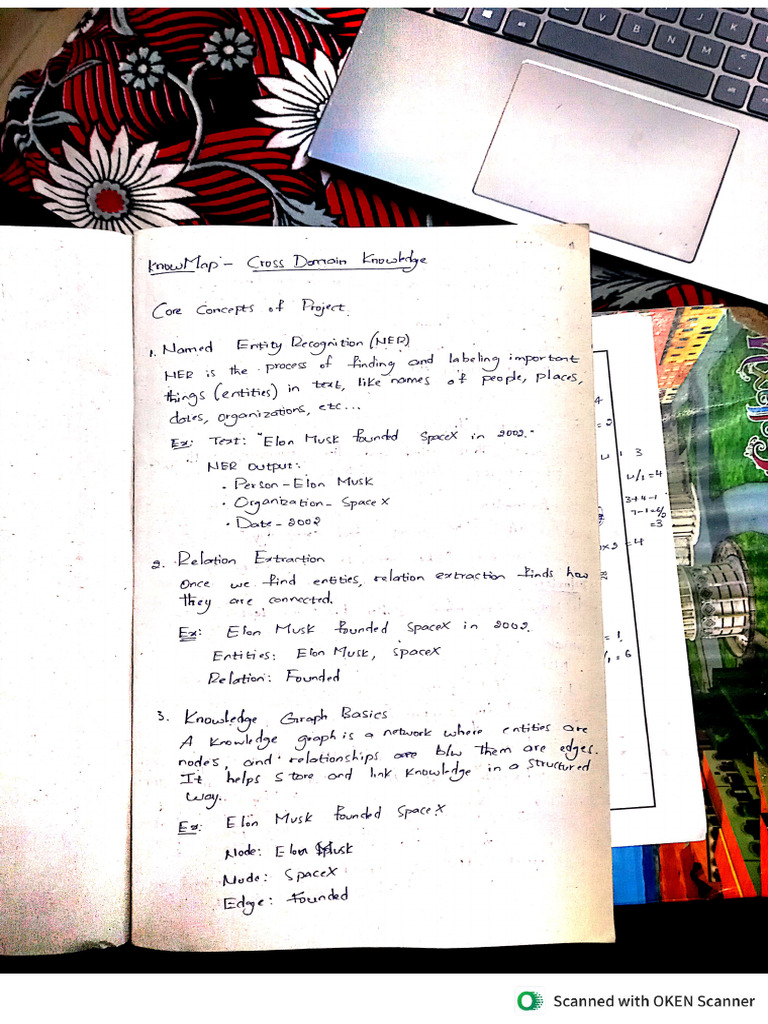 KnowMap - Cross Domain Knowledge
Core Concepts of Project
1. Named Entity Recognition (NER)
NER is the process of finding and labeling important
things (entities) in text, like names of people, places,
dates, organizations, etc...
Ex: Text: "Elon Musk founded SpaceX in 2002."
NER output:
• Person - Elon Musk
• Organization - Space X
• Date - 2002
2. Relation Extraction
Once we find entities, relation extraction finds how
they are connected.
Ex: Elon Musk founded SpaceX in 2002.
Entities: Elon Musk, SpaceX
Relation: Founded
3. Knowledge Graph Basics
A knowledge graph is a network where entities are
nodes, and relationships are b/w them are edges.
It helps store and link knowledge in a structured
way..
Ex: Elon Musk founded SpaceX
Node: Elon Musk
Node: SpaceX
Edge: Founded
4
= 2
3
u/1 = 4
3+4-1
= 3
x2 = 4
= 1
= 6
V
B
N
M
J
K
<
Scanned with OKEN Scanner